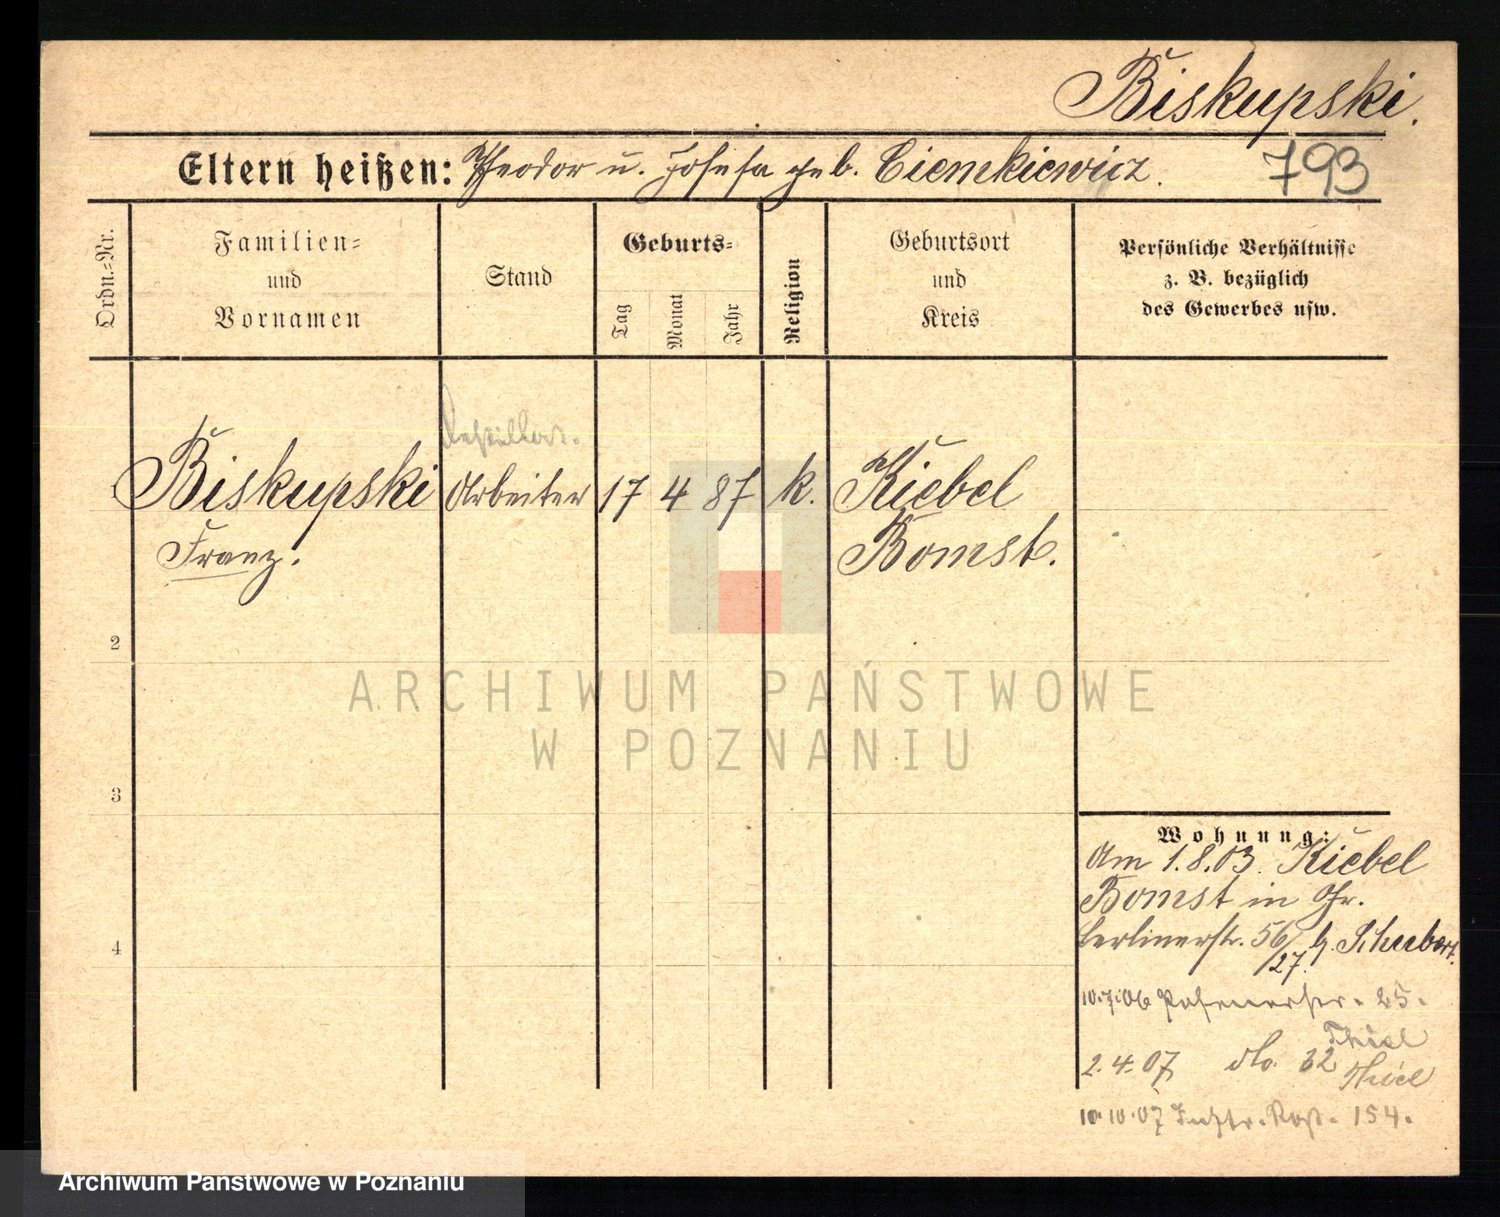 Biskupski.
Eltern heißen: Theodor u. Josefa geb. Ciemkiewicz.
793
Ordn.=Nr.
Familien=
und
Vornamen
Stand
Geburts=
Tag
Monat
Jahr
Religion
Geburtsort
und
Kreis
Persönliche Verhältnisse
z. B. bezüglich
des Gewerbes usw.
1 Biskupski Arbeiter 17 4 87 k. Kiebel
Franz. Bomst.
2
ARCHIWUM PAŃSTWOWE
W POZNANIU
3
Wohnung:
Am 1.8.03. Kiebel
Bomst in Gr.
Berlinerstr. 56/27. b. Schubert.
10.7.06 Posenerstr. 25.
Thiel
2.4.07 do. 32 Thiel
10.10.07 154.
4
Archiwum Państwowe w Poznaniu